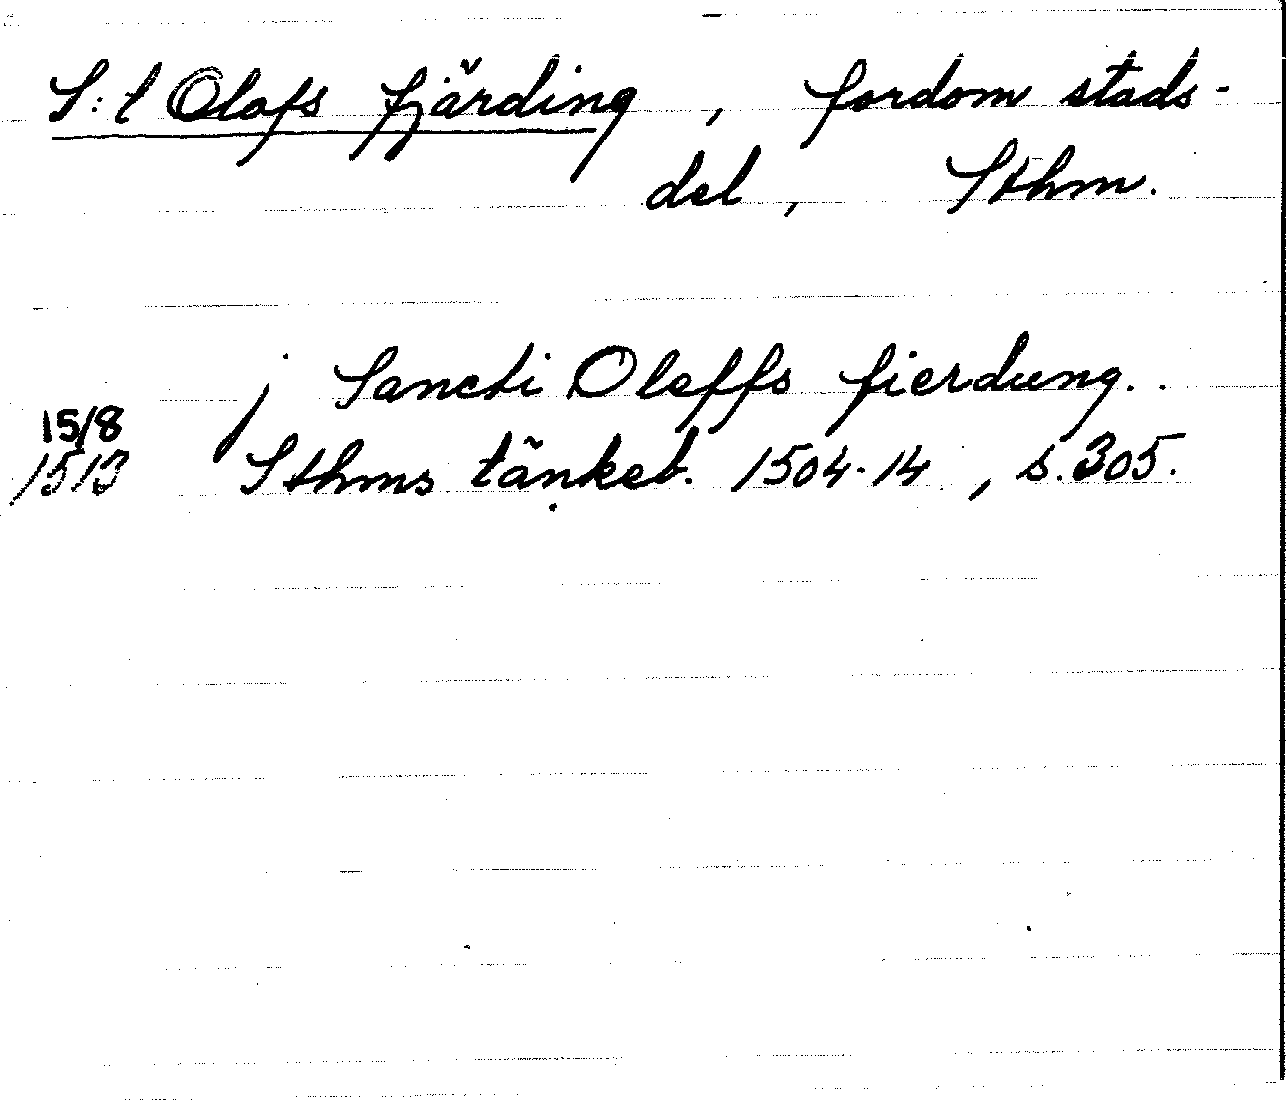 S:t Olofs fjärding, fordom stads-
del, Sthm.
j Sancti Oleffs fierdung..
15/8
1513 Sthms tänkeb. 1504-14, s. 305.